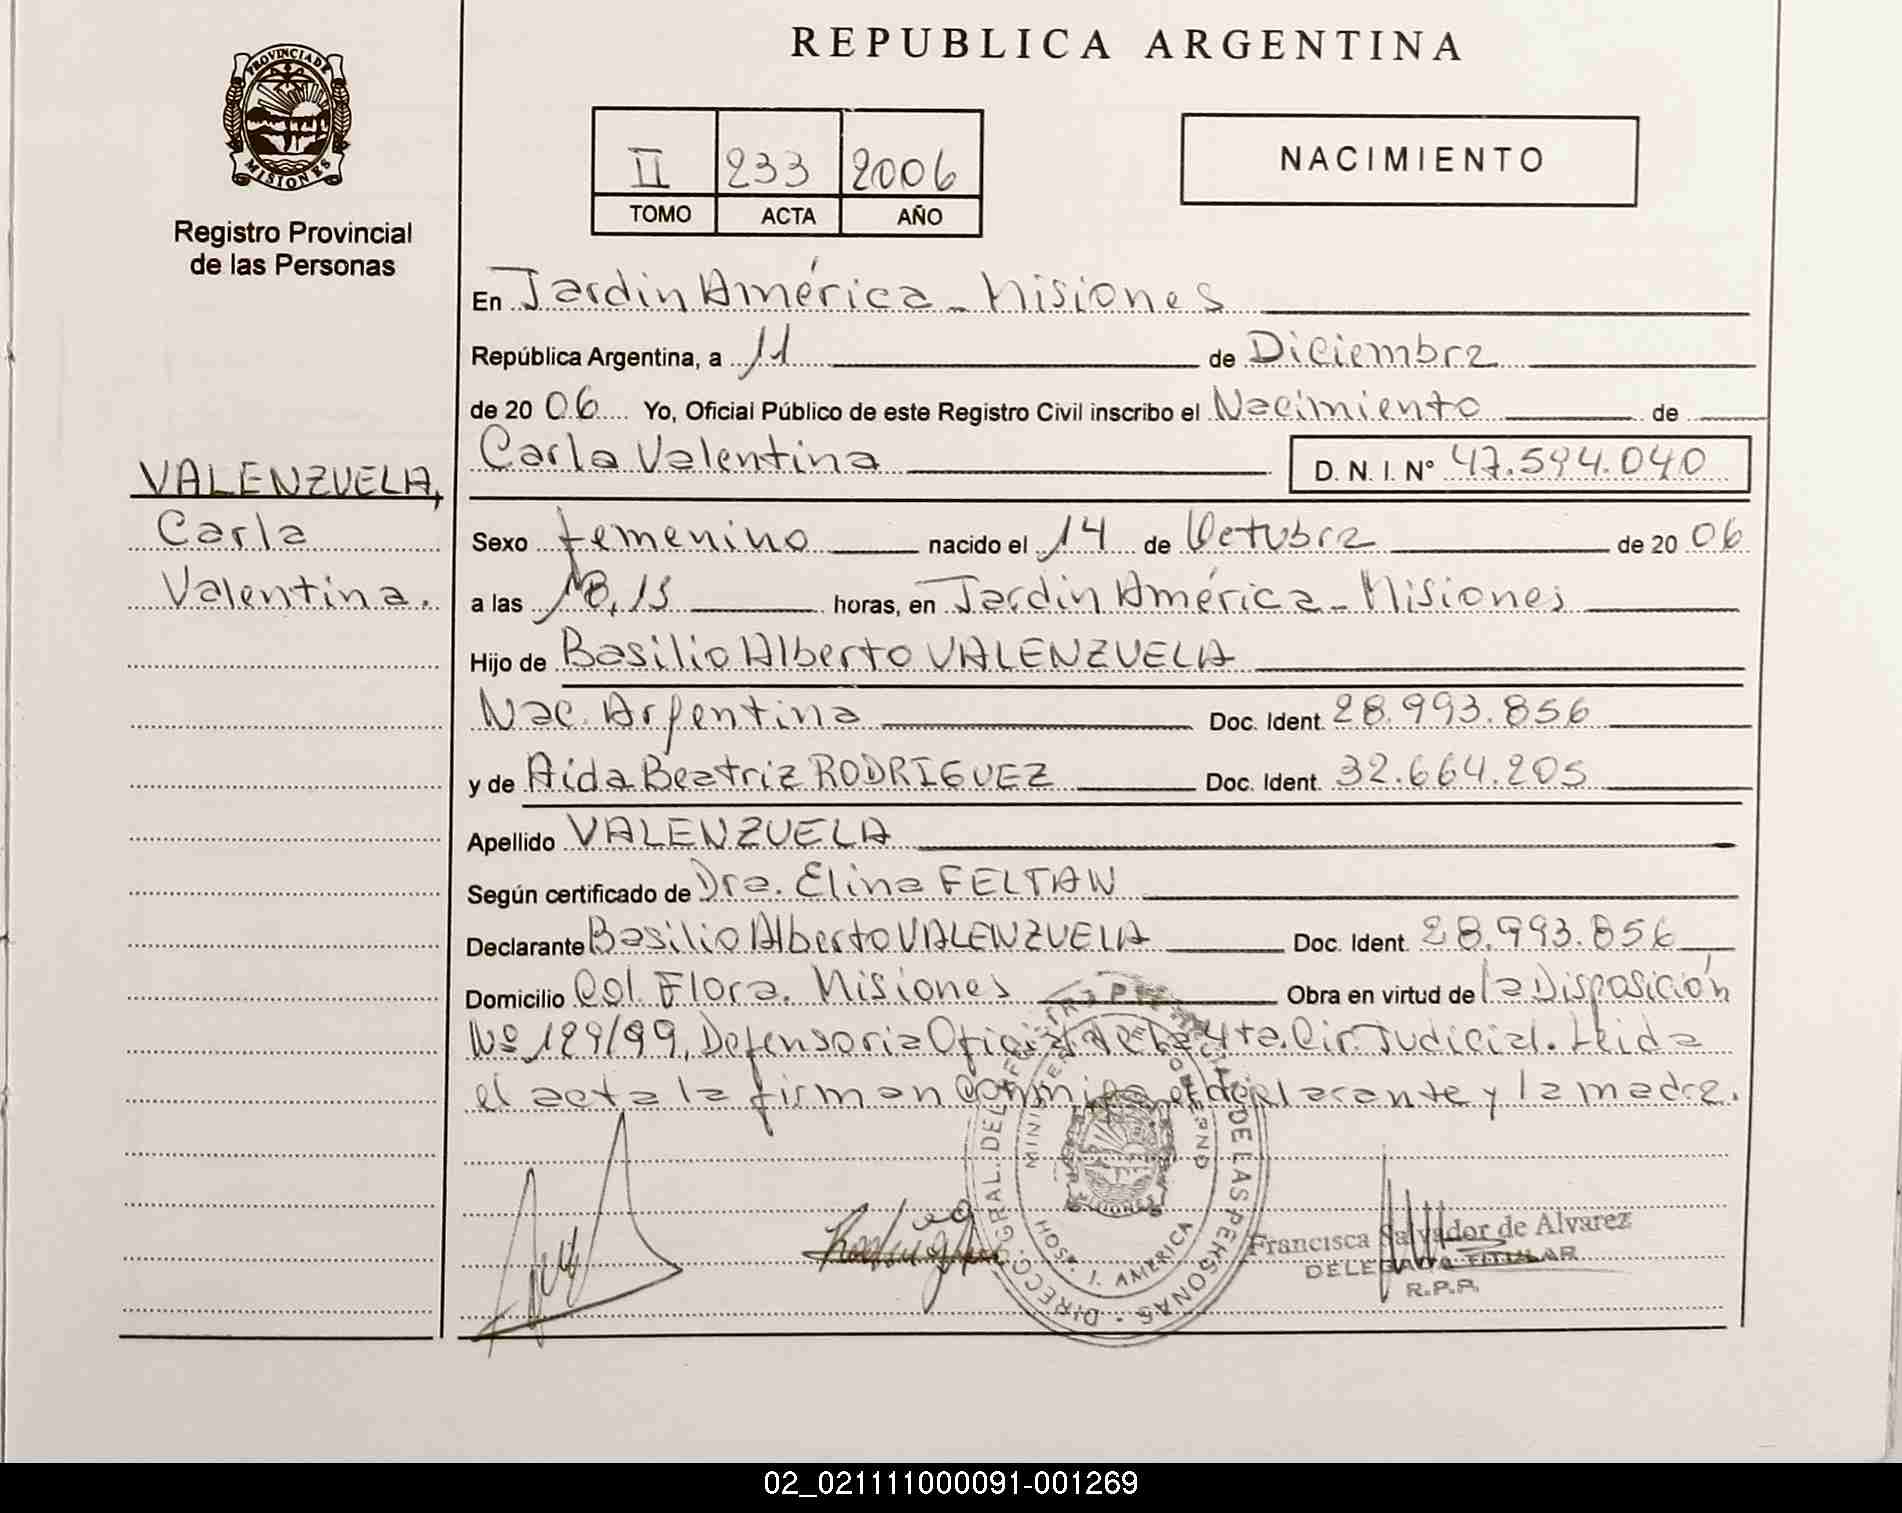 REPUBLICA ARGENTINA
PROVINCIA DE
MISIONES
Registro Provincial
de las Personas
II 233 2006
TOMO ACTA AÑO
NACIMIENTO
VALENZUELA,
Carla
Valentina.
En Jardin América - Misiones
República Argentina, a 11 de Diciembre
de 20 06 Yo, Oficial Público de este Registro Civil inscribo el Nacimiento de
Carla Valentina D. N. I. Nº 47.594.040
Sexo femenino nacido el 14 de Octubre de 20 06
a las 18,15 horas, en Jardin América - Misiones
Hijo de Basilio Alberto VALENZUELA
Nac. Argentina Doc. Ident. 28.993.856
y de Aida Beatriz RODRIGUEZ Doc. Ident. 32.664.205
Apellido VALENZUELA
Según certificado de Dra. Elina FELTAN
Declarante Basilio Alberto VALENZUELA Doc. Ident. 28.993.856
Domicilio Col. Flora. Misiones Obra en virtud de la Disposición
Nº 129/99, Defensoria Oficial de la 4ta. Cir Judicial. Leida
el acta la firman conmigo el declarante y la madre.
DIRECG. GRAL. DEL DE LAS PERSONAS
HOSP. J. AMERICA
Francisca Salvador de Alvarez
DELEGADA TITULAR
R.P.P.
02_021111000091-001269